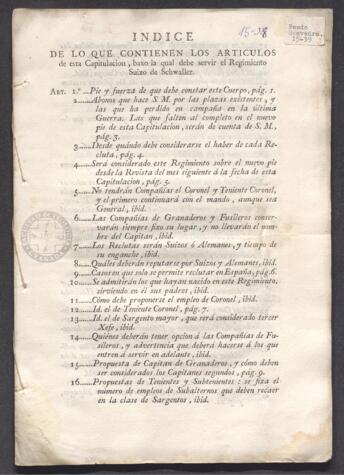 15-38
Ponto
15-39
INDICE
DE LO QUE CONTIENEN LOS ARTICULOS
de esta Capitulacion, baxo la qual debe servir el Regimiento
Suizo de Schwaller.
ART. 1.º..Pie y fuerza de que debe constar este Cuerpo, pág. 1.
2.....Abonos que hace S. M. por las plazas existentes, y
las que ha perdido en campaña en la última
Guerra. Las que falten al completo en el nuevo
pie de esta Capitulacion, serán de cuenta de S. M.,
pág. 3.
3.....Desde quándo debe considerarse el haber de cada Re-
cluta, pág. 4.
4.....Será considerado este Regimiento sobre el nuevo pie
desde la Revista del mes siguiente á la fecha de esta
Capitulacion, pág. 5.
5.....No tendrán Compañías el Coronel y Teniente Coronel,
y el primero continuará con el mando, aunque sea
General, ibid.
6.....Las Compañías de Granaderos y Fusileros conser-
varán siempre fixo su lugar, y no llevarán el nom-
bre del Capitan, ibid.
7.....Los Reclutas serán Suizos ó Alemanes, y tiempo de
su enganche, ibid.
8.....Quáles deberán reputarse por Suizos y Alemanes, ibid.
9.....Casos en que solo se permite reclutar en España, pág. 6.
10.....Se admitirán los que hayan nacido en este Regimiento,
sirviendo en él sus padres, ibid.
11.....Cómo debe proponerse el empleo de Coronel, ibid.
12.....Id. el de Teniente Coronel, pág. 7.
13.....Id. el de Sargento mayor, que será considerado tercer
Xefe, ibid.
14.....Quiénes deberán tener opcion á las Compañías de Fu-
sileros, y advertencia que deberá hacerse á los que
entren á servir en adelante, ibid.
15.....Propuesta de Capitan de Granaderos, y cómo deben
ser considerados los Capitanes segundos, pág. 9.
16.....Propuestas de Tenientes y Subtenientes: se fixa el
número de empleos de Subalternos que deben recaer
en la clase de Sargentos, ibid.